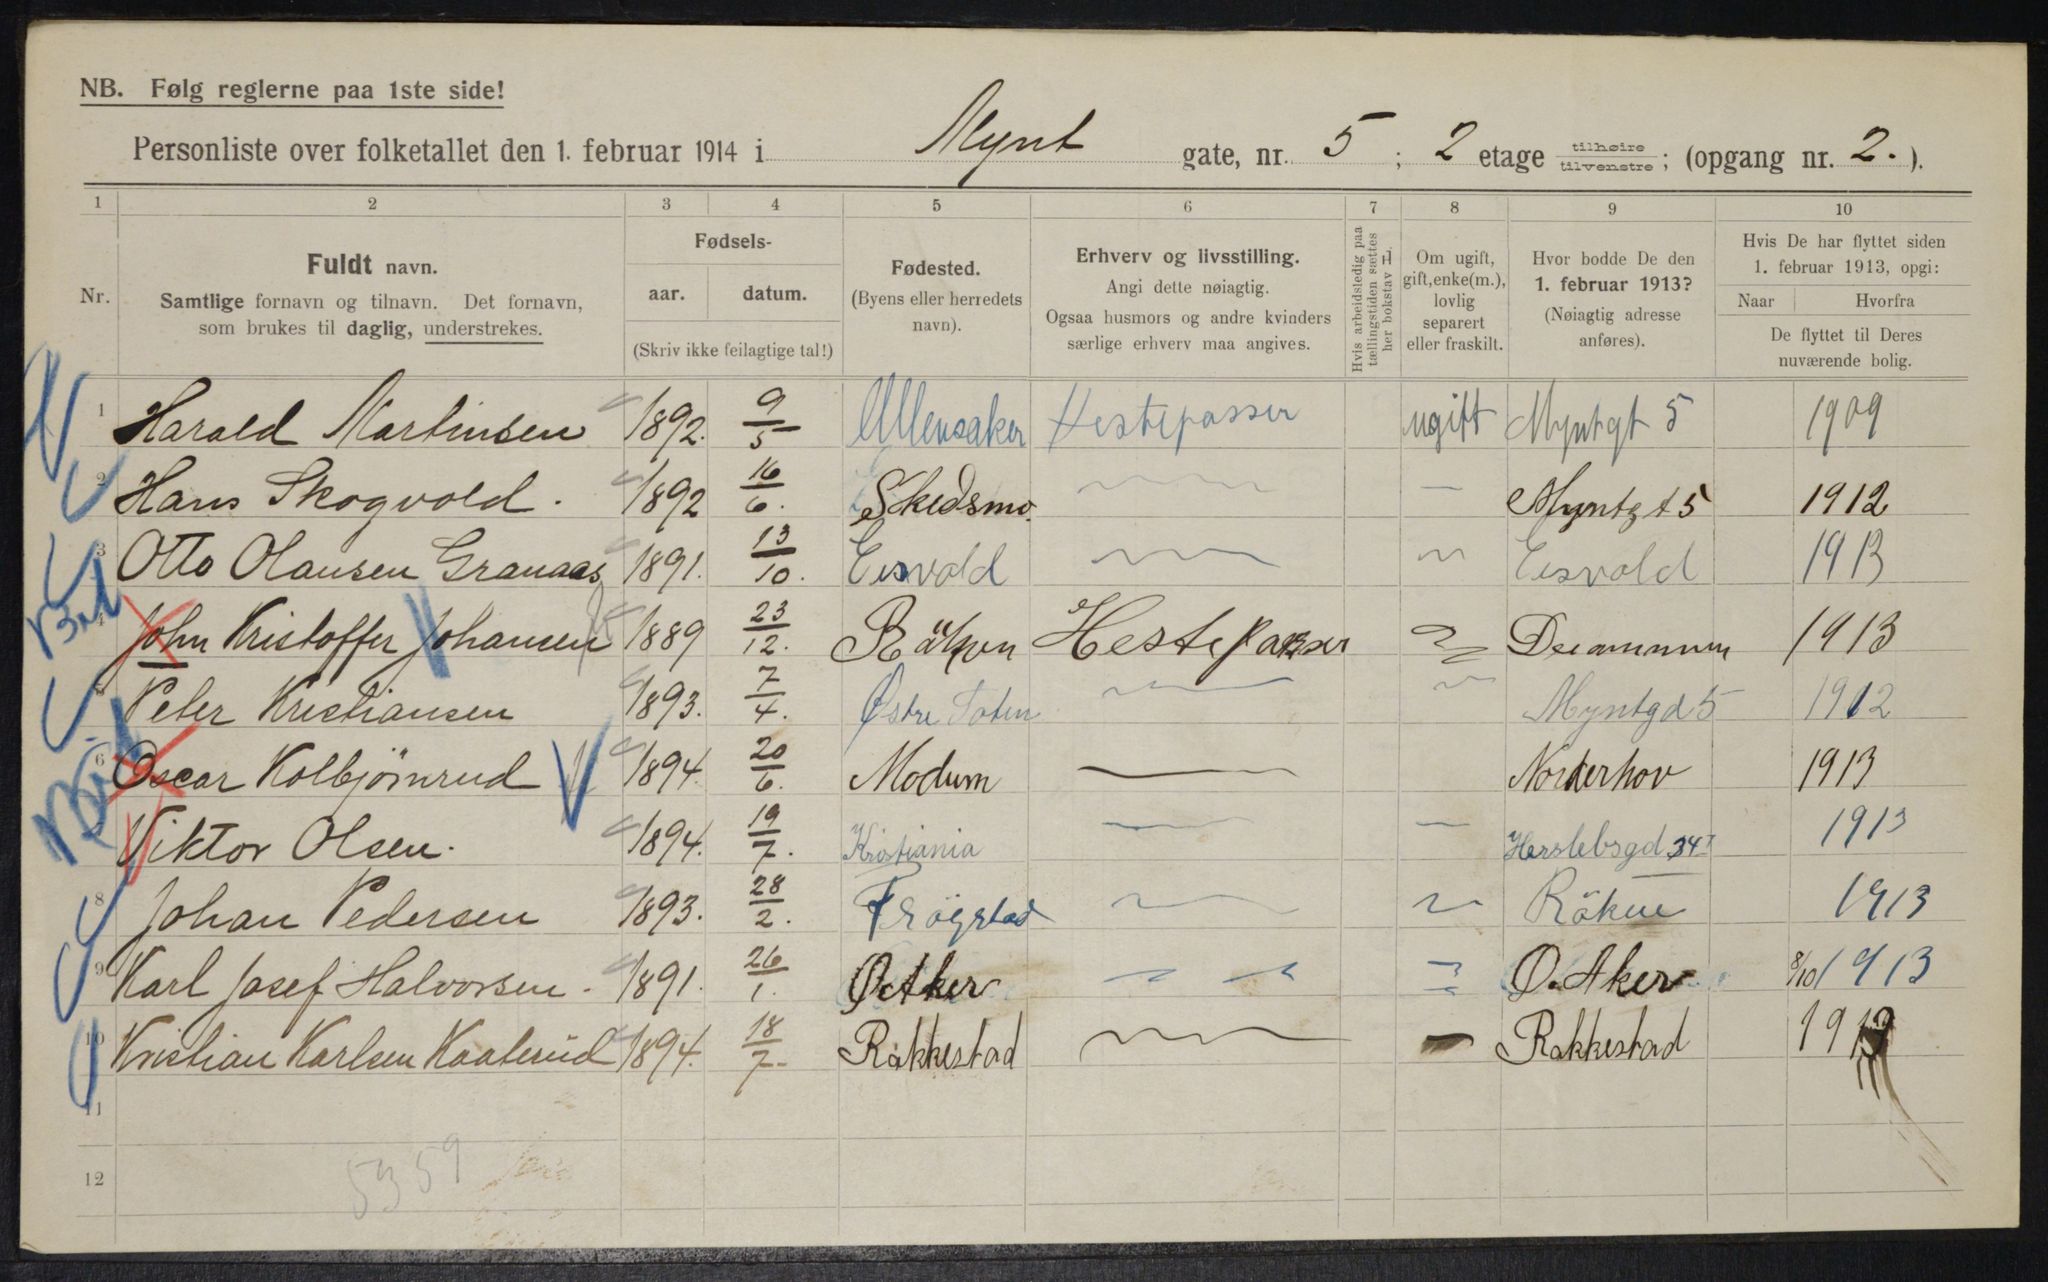 NB. Følg reglerne paa 1ste side!
Personliste over folketallet den 1. februar 1914 i Mynt gate, nr. 5 ; 2 etage tilhøire tilvenstre ; (opgang nr. 2. ).
1 2 3 4 5 6 7 8 9 10
Nr.
Fuldt navn.
Samtlige fornavn og tilnavn. Det fornavn,
som brukes til daglig, understrekes.
Fødsels-
aar. datum.
(Skriv ikke feilagtige tal!)
Fødested.
(Byens eller herredets
navn).
Erhverv og livsstilling.
Angi dette nøiagtig.
Ogsaa husmors og andre kvinders
særlige erhverv maa angives.
Hvis arbeidsledig paa
tællingstiden sættes
her bokstav L.
Om ugift,
gift, enke(m.),
lovlig
separert
eller fraskilt.
Hvor bodde De den
1. februar 1913?
(Nøiagtig adresse
anføres).
Hvis De har flyttet siden
1. februar 1913, opgi:
Naar Hvorfra
De flyttet til Deres
nuværende bolig.
1 Harald Martinsen 1892. 9/5 Ullensaker Hestepasser ugift Myntgt 5 1909
2 Hans Skogvold. 1892 16/6. Skedsmo. Myntgt 5 1912
3 Otto Olausen Granaas 1891. 13/10. Eisvold Eisvold 1913
4 John Kristoffer Johansen 1889 23/12. Hestepasser 1913
5 Peter Kristiansen 1893. 7/4. Østre Toten Myntgd 5 1912
6 Oscar Kolbjörnrud 1894. 20/6. Modum Norderhov 1913
7 Viktor Olsen. 1894. 19/7. Kristiania Herslebsgd 34 1913
8 Johan Pedersen 1893. 28/2. Frögstad Röken 1913
9 Karl Josef Halvorsen. 1891. 26/1. Ø. Aker Ø. Aker 8/10 1913
10 Kristian Karlsen Kaaterud 1894. 18/7. Rakkestad Rakkestad 1913
11
12
5359